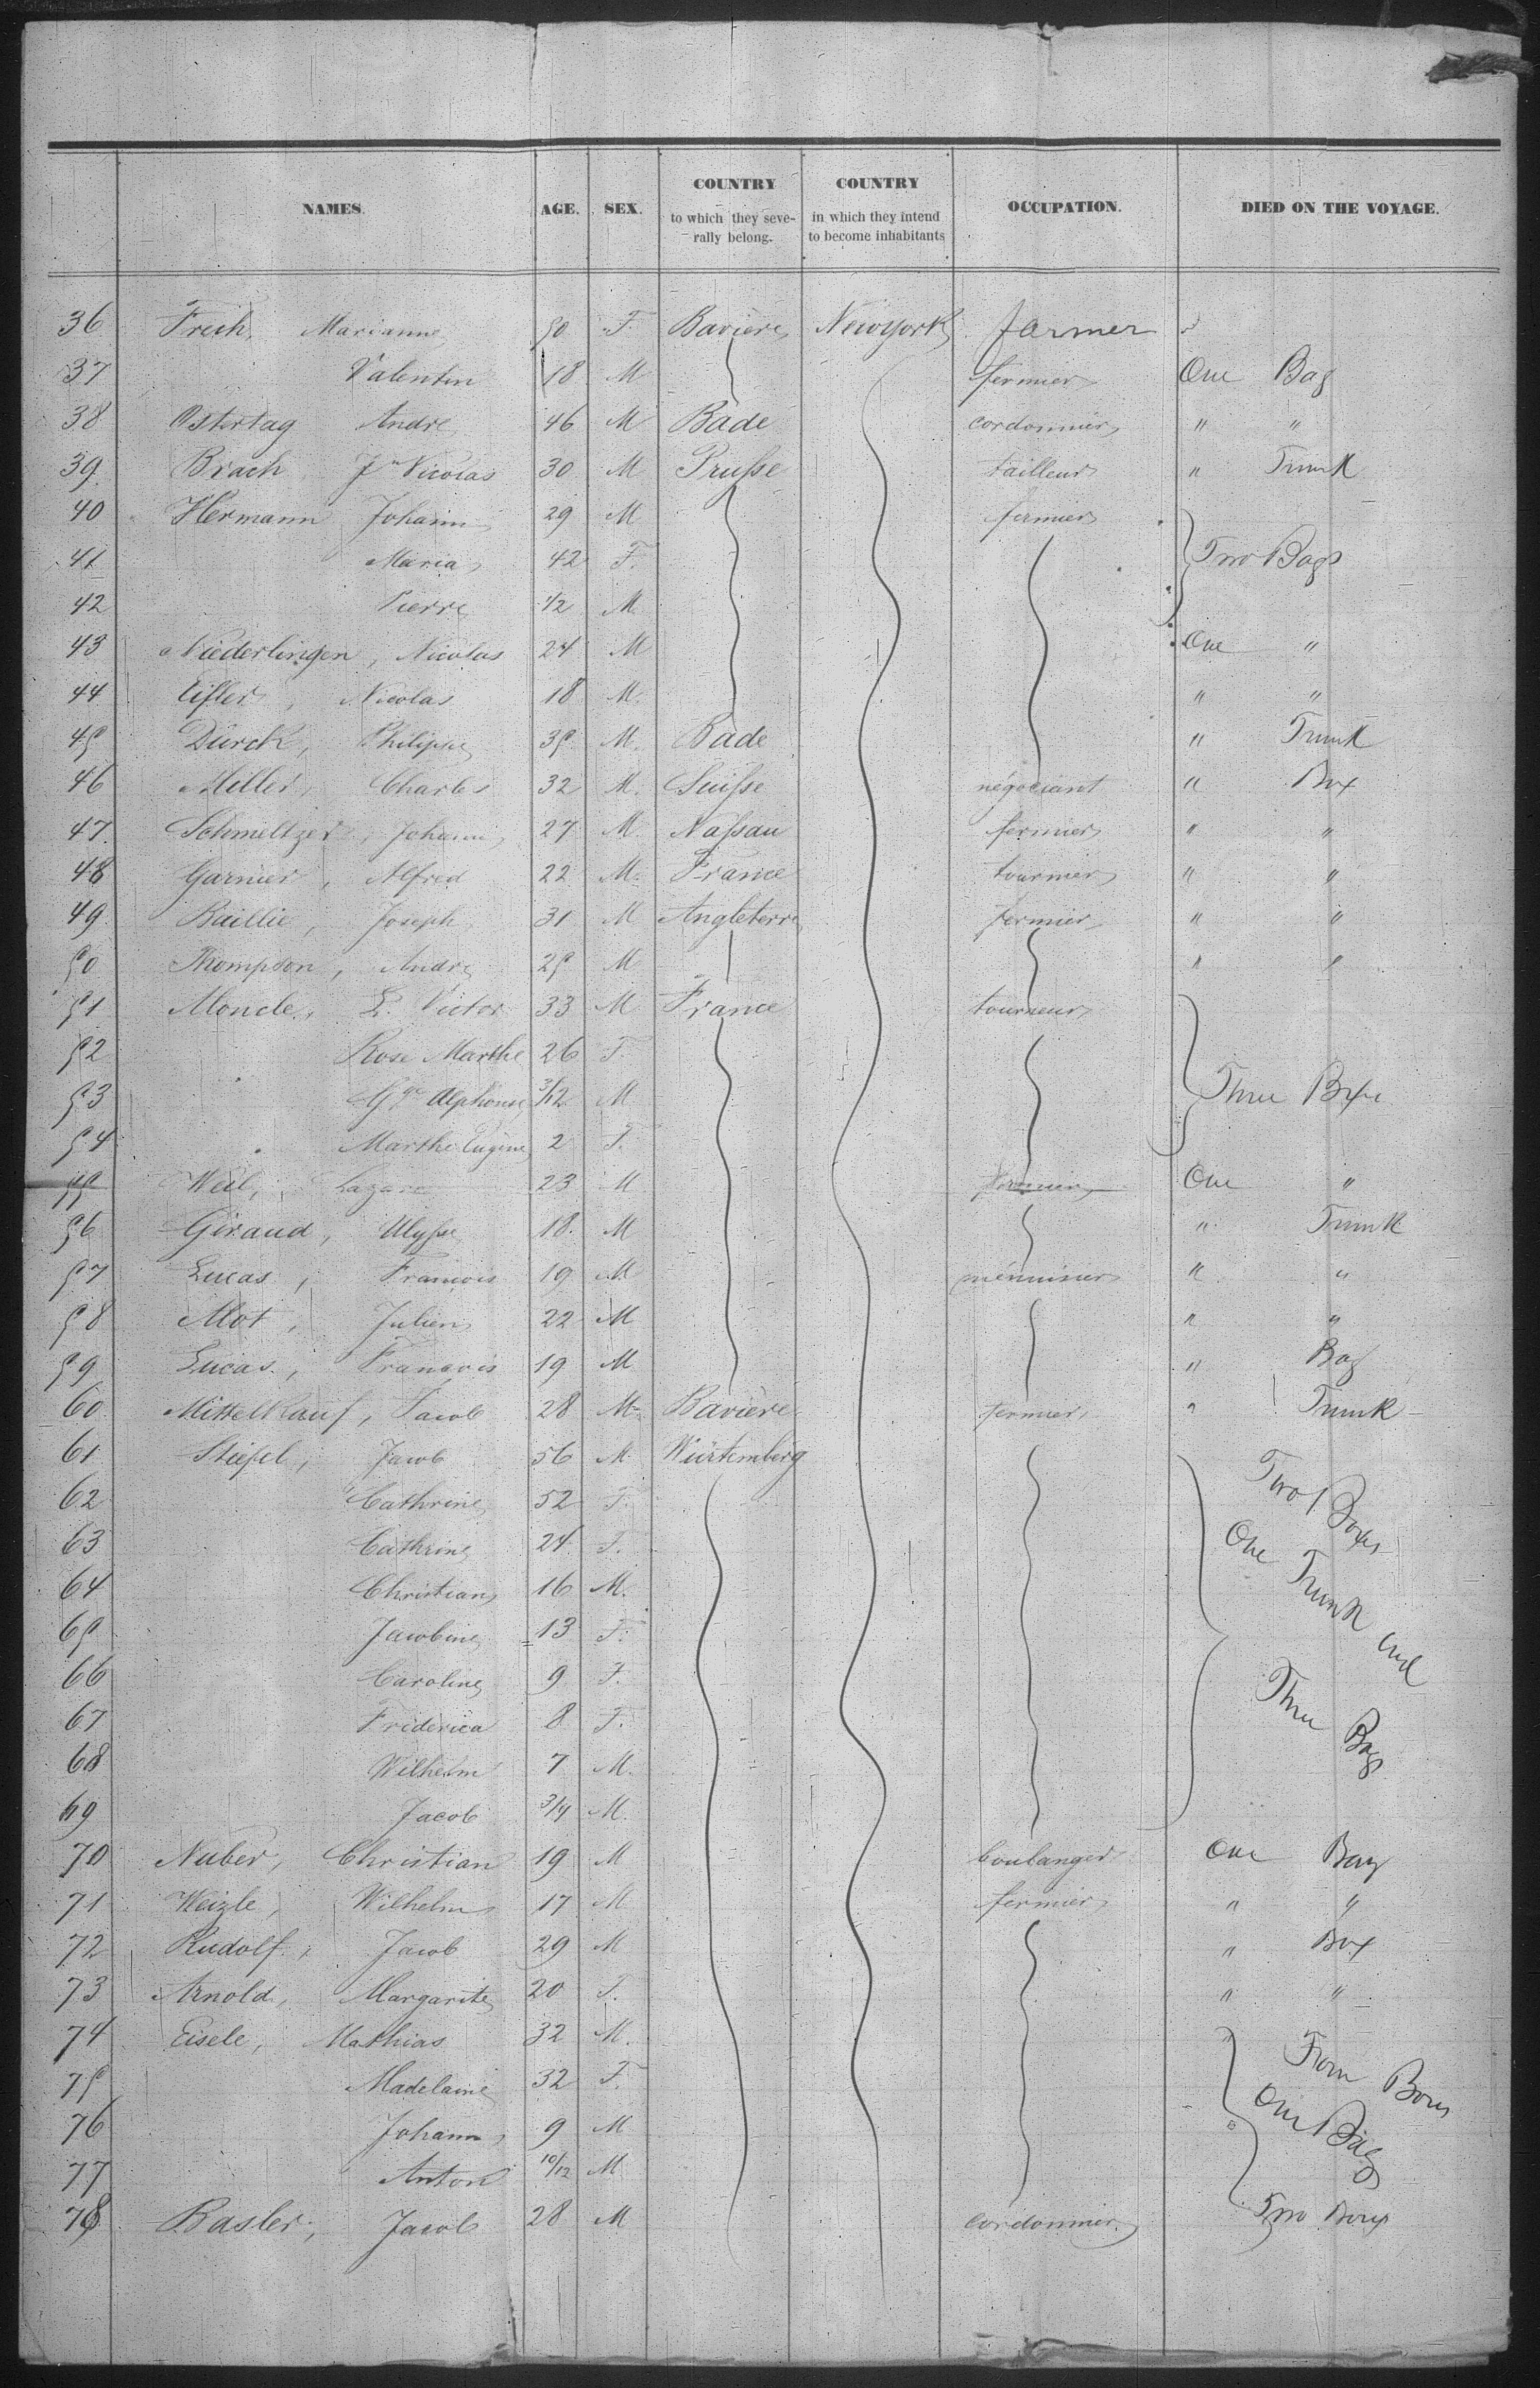 NAMES. AGE. SEX. COUNTRY to which they seve- rally belong. COUNTRY in which they intend to become inhabitants OCCUPATION. DIED ON THE VOYAGE.
36 Frech, Marianne 50 F. Baviere NewYork farmer "
37 Valentin 18 M fermier One Bag
38 Ostertag Andre 46 M Bade cordonnier " "
39. Brach Jn Nicolas 30 M Prusse tailleur " Trunk
40 Hermann Johann 29 M fermier
41 Maria 42 F. Two Bags
42 Pierre 1/2 M
43 Niederlingen, Nicolas 24 M One "
44 Eifler, Nicolas 18 M. " "
45 Dürck, Philippe 35 M. Bade " Trunk
46 Meller, Charles 32 M. Suisse négociant " Box
47. Schmeltzer, Johann 27 M. Nassau fermier " "
48 Garnier, Alfred 22 M. France " "
49. Baillie, Joseph 31 M Angleterre fermier " "
50 Thompson, Andre 25 M " "
51 Moncle, L. Victor 33 M France tourneur
52 Rose Marthe 26 F.
53 Alphonse 3/12 M Three Boxe
54 Marthe Eugène 2 F.
55 Weil, Lazare 23 M fermier One "
56 Giraud, Ulysse 18. M " Trunk
57 Lucas, Francois 19 M menuisier " "
58 Mot, Julien 22 M " "
59 Lucas, Francois 19 M " Bag
60 Mittelkauf, Jacob 28 M. Baviere fermier " Trunk
61 Stiefel, Jacob 56 M. Würtemberg
62 Cathrine 52 F. Two Boxes
63 Cathrine 24 F. One Trunk and
64 Christian 16 M.
65 Jacobine 13 F.
66 Caroline 9 F. Three Bags
67 Friderica 8 F.
68 Wilhelm 7 M.
69 Jacob 3/4 M.
70 Nuber, Christian 19 M boulanger One Bag
71 Weizle, Wilhelm 17 M fermier " "
72 Rudolf, Jacob 29 M " Box
73 Arnold, Margarite 20 F. " "
74 Eisele, Mathias 32 M.
75 Madelaine 32 F.
76 Johann 9 M One Bag
77 Anton 10/12 M
78 Basler, Jacob 28 M cordonnier Two